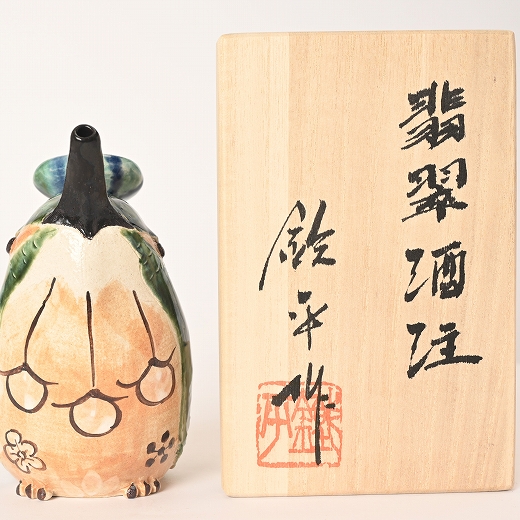 翡翠酒注
鈴平作